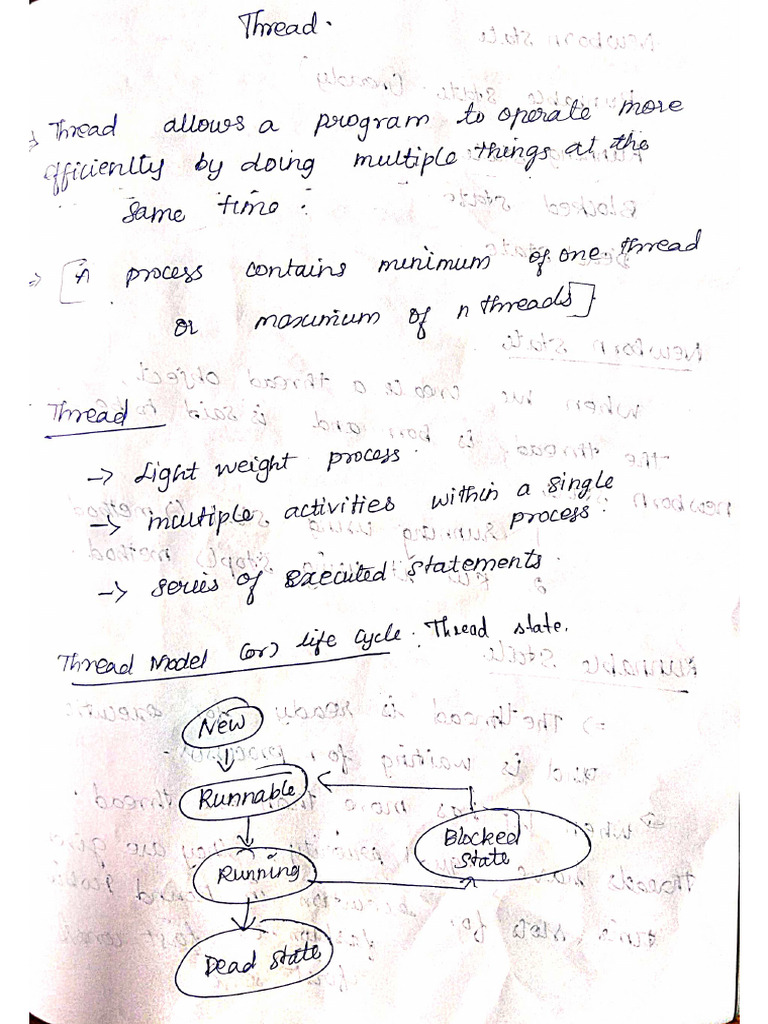 Thread.
→ Thread allows a program to operate more
efficienlty by doing multiple things at the
same time.
⇒ [A process contains minimum of one thread
or maxumium of n threads]
Thread
→ Light weight process.
→ multiple activities within a single
process.
→ series of executed statements.
Thread Model (or) life cycle. Thread state.
New
Runnable
Blocked
State
Running
Dead State